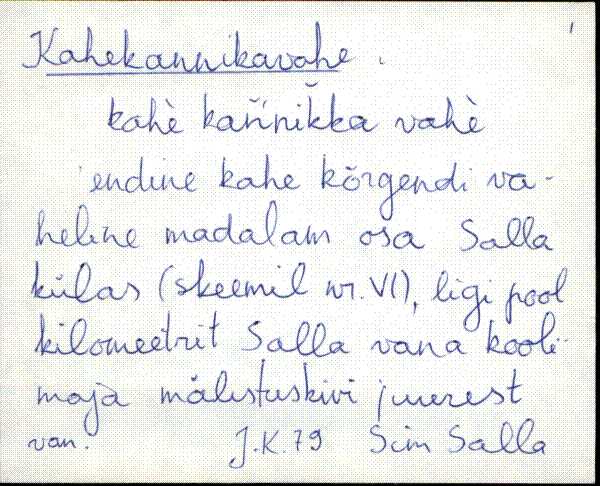 Kahekannikavahe.
kahè kan̆ńik̆ka vahè
endine kahe kõrgendi va-
heline madalam osa Salla
külas (skeemil nr. VI), ligi pool
kilomeetrit Salla vana kooli-
maja mälestuskivi juurest
J.K. 79 Sim Salla